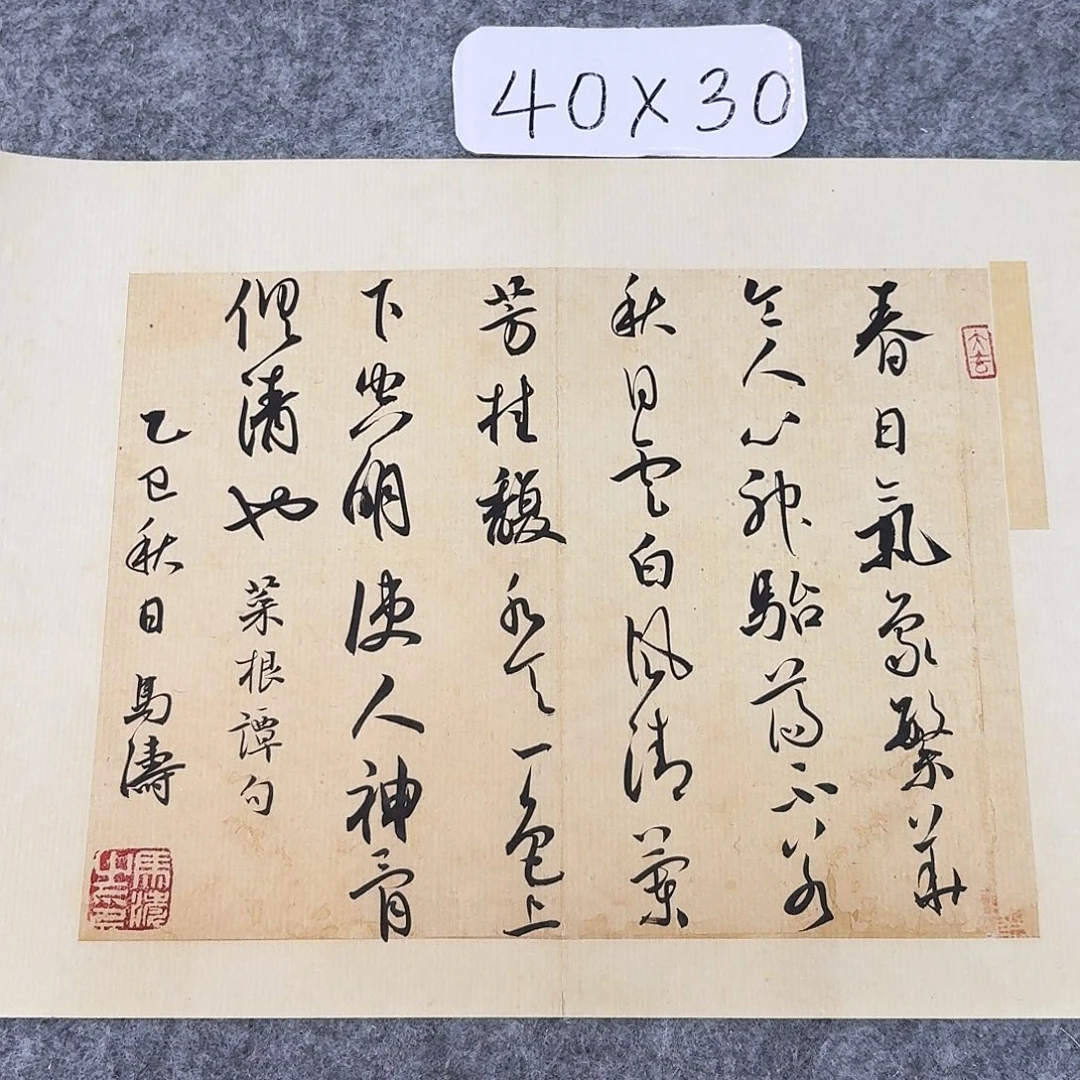 40X30
春日氣象繁華
令人心神駘蕩不若
秋日雲白風清蘭
芳桂馥水天一色上
下空明使人神骨
俱清也 菜根譚句
乙巳秋日 馬濤
馬濤之印